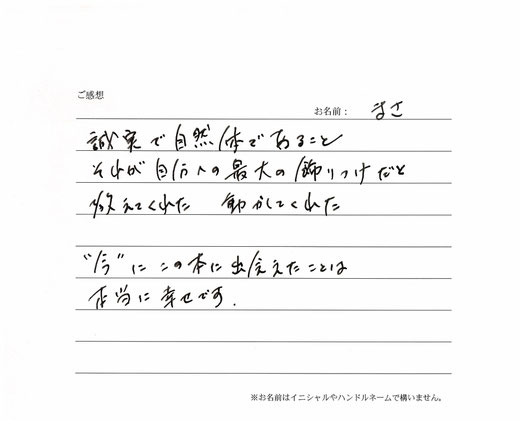 ご感想
お名前： まさ
誠実で自然体であること
それが自分への最大の飾りつけだと
教えてくれた　動かしてくれた
"今"にこの本に出会えたことは
本当に幸せです.
※お名前はイニシャルやハンドルネームで構いません。